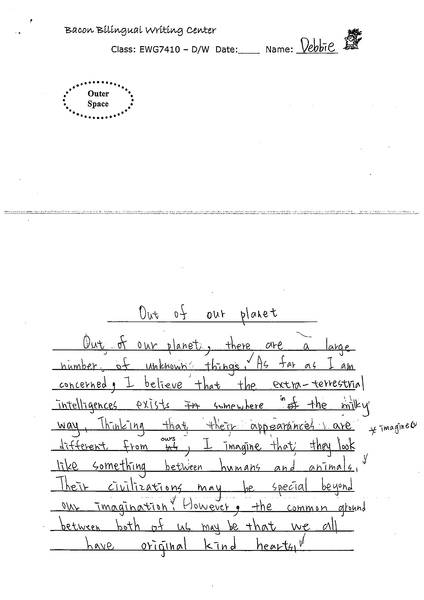 Bacon Bilingual Writing Center
Class: EWG7410 – D/W Date:____ Name: Debbie
Outer
Space
Out of our planet
Out of our planet, there are a large
number of unknown things. As far as I am
concerned, I believe that the extra-terrestrial
intelligences exists in somewhere in of the milky
way. Thinking that their appearances are
* imagine
different from us ours, I imagine that they look
like something between humans and animals.
Their civilizations may be special beyond
our imagination. However, the common ground
between both of us may be that we all
have original kind hearts.